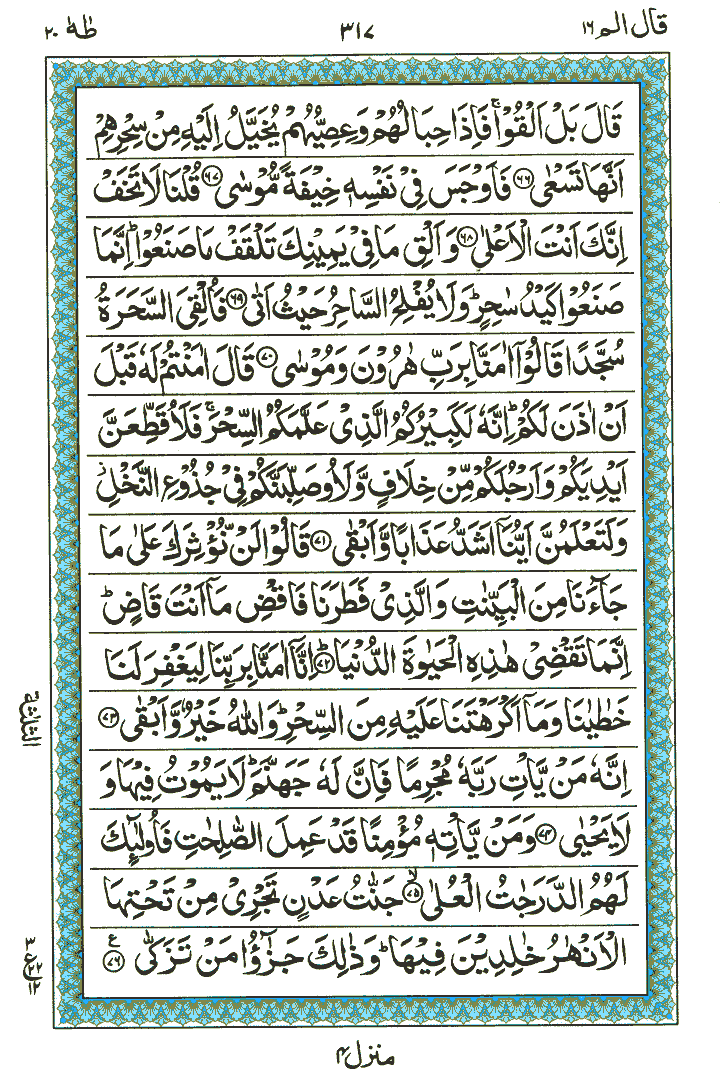 قال الم ١٦
٣١٧
طٰهٰ ٢٠
قَالَ بَلْ اَلْقُوْا ۚ فَاِذَا حِبَالُهُمْ وَعِصِيُّهُمْ يُخَيَّلُ اِلَيْهِ مِنْ سِحْرِهِمْ
اَنَّهَا تَسْعٰى ﴿٦٦﴾ فَاَوْجَسَ فِيْ نَفْسِهٖ خِيْفَةً مُّوْسٰى ﴿٦٧﴾ قُلْنَا لَا تَخَفْ
اِنَّكَ اَنْتَ الْاَعْلٰى ﴿٦٨﴾ وَاَلْقِ مَا فِيْ يَمِيْنِكَ تَلْقَفْ مَا صَنَعُوْا ؕ اِنَّمَا
صَنَعُوْا كَيْدُ سٰحِرٍ ؕ وَلَا يُفْلِحُ السَّاحِرُ حَيْثُ اَتٰى ﴿٦٩﴾ فَاُلْقِيَ السَّحَرَةُ
سُجَّدًا قَالُوْۤا اٰمَنَّا بِرَبِّ هٰرُوْنَ وَمُوْسٰى ﴿٧٠﴾ قَالَ اٰمَنْتُمْ لَهٗ قَبْلَ
اَنْ اٰذَنَ لَكُمْ ؕ اِنَّهٗ لَكَبِيْرُكُمُ الَّذِيْ عَلَّمَكُمُ السِّحْرَ ۚ فَلَاُقَطِّعَنَّ
اَيْدِيَكُمْ وَاَرْجُلَكُمْ مِّنْ خِلَافٍ وَّلَاُوصَلِّبَنَّكُمْ فِيْ جُذُوْعِ النَّخْلِ ز
وَلَتَعْلَمُنَّ اَيُّنَاۤ اَشَدُّ عَذَابًا وَّاَبْقٰى ﴿٧١﴾ قَالُوْا لَنْ نُّؤْثِرَكَ عَلٰى مَا
جَآءَنَا مِنَ الْبَيِّنٰتِ وَالَّذِيْ فَطَرَنَا فَاقْضِ مَاۤ اَنْتَ قَاضٍ ؕ
اِنَّمَا تَقْضِيْ هٰذِهِ الْحَيٰوةَ الدُّنْيَا ؕ ﴿٧٢﴾ اِنَّاۤ اٰمَنَّا بِرَبِّنَا لِيَغْفِرَ لَنَا
خَطٰيٰنَا وَمَاۤ اَكْرَهْتَنَا عَلَيْهِ مِنَ السِّحْرِ ؕ وَاللّٰهُ خَيْرٌ وَّاَبْقٰى ﴿٧٣﴾
اِنَّهٗ مَنْ يَّاْتِ رَبَّهٗ مُجْرِمًا فَاِنَّ لَهٗ جَهَنَّمَ ؕ لَا يَمُوْتُ فِيْهَا وَ
لَا يَحْيٰى ﴿٧٤﴾ وَمَنْ يَّاْتِهٖ مُؤْمِنًا قَدْ عَمِلَ الصّٰلِحٰتِ فَاُولٰٓئِكَ
لَهُمُ الدَّرَجٰتُ الْعُلٰى ۙ ﴿٧٥﴾ جَنّٰتُ عَدْنٍ تَجْرِيْ مِنْ تَحْتِهَا
الْاَنْهٰرُ خٰلِدِيْنَ فِيْهَا ؕ وَذٰلِكَ جَزٰٓؤُا مَنْ تَزَكّٰى ﴿٧٦﴾ ع
الثلثة
٣
ع ٢٢
١٢
منزل ٤